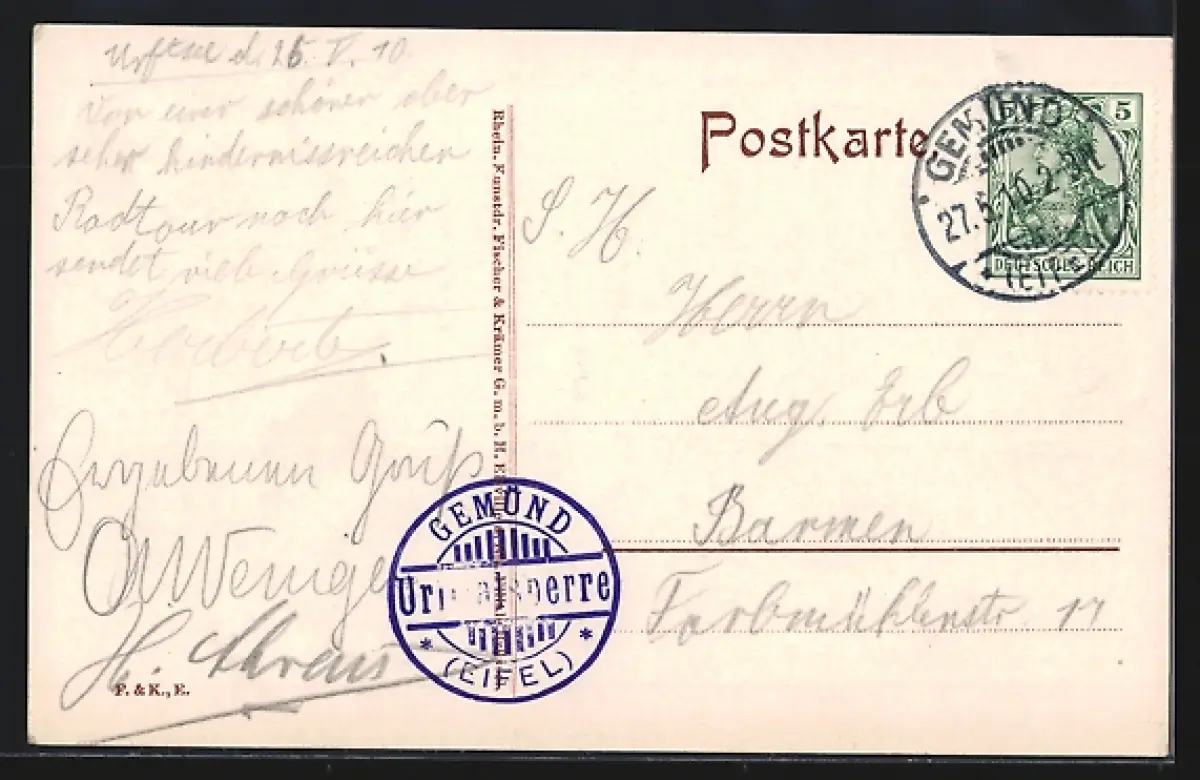 Urftsee d. 25. V. 10.
Von einer schönen aber
sehr hindernissreichen
Radtour nach hier
sendet viele Grüsse
Herbert.
Gruß
H.
F. & K., E.
Rhein. Kunstdr. Fischer & Krämer G. m. b. H.
GEMÜND
(EIFEL)
Postkarte
GEMÜND
27.5.10.2-3N
(EIFEL)
5
DEUTSCHES REICH
S. H.
Herrn
Aug. Erb
Barmen
Farbmühlenstr 17